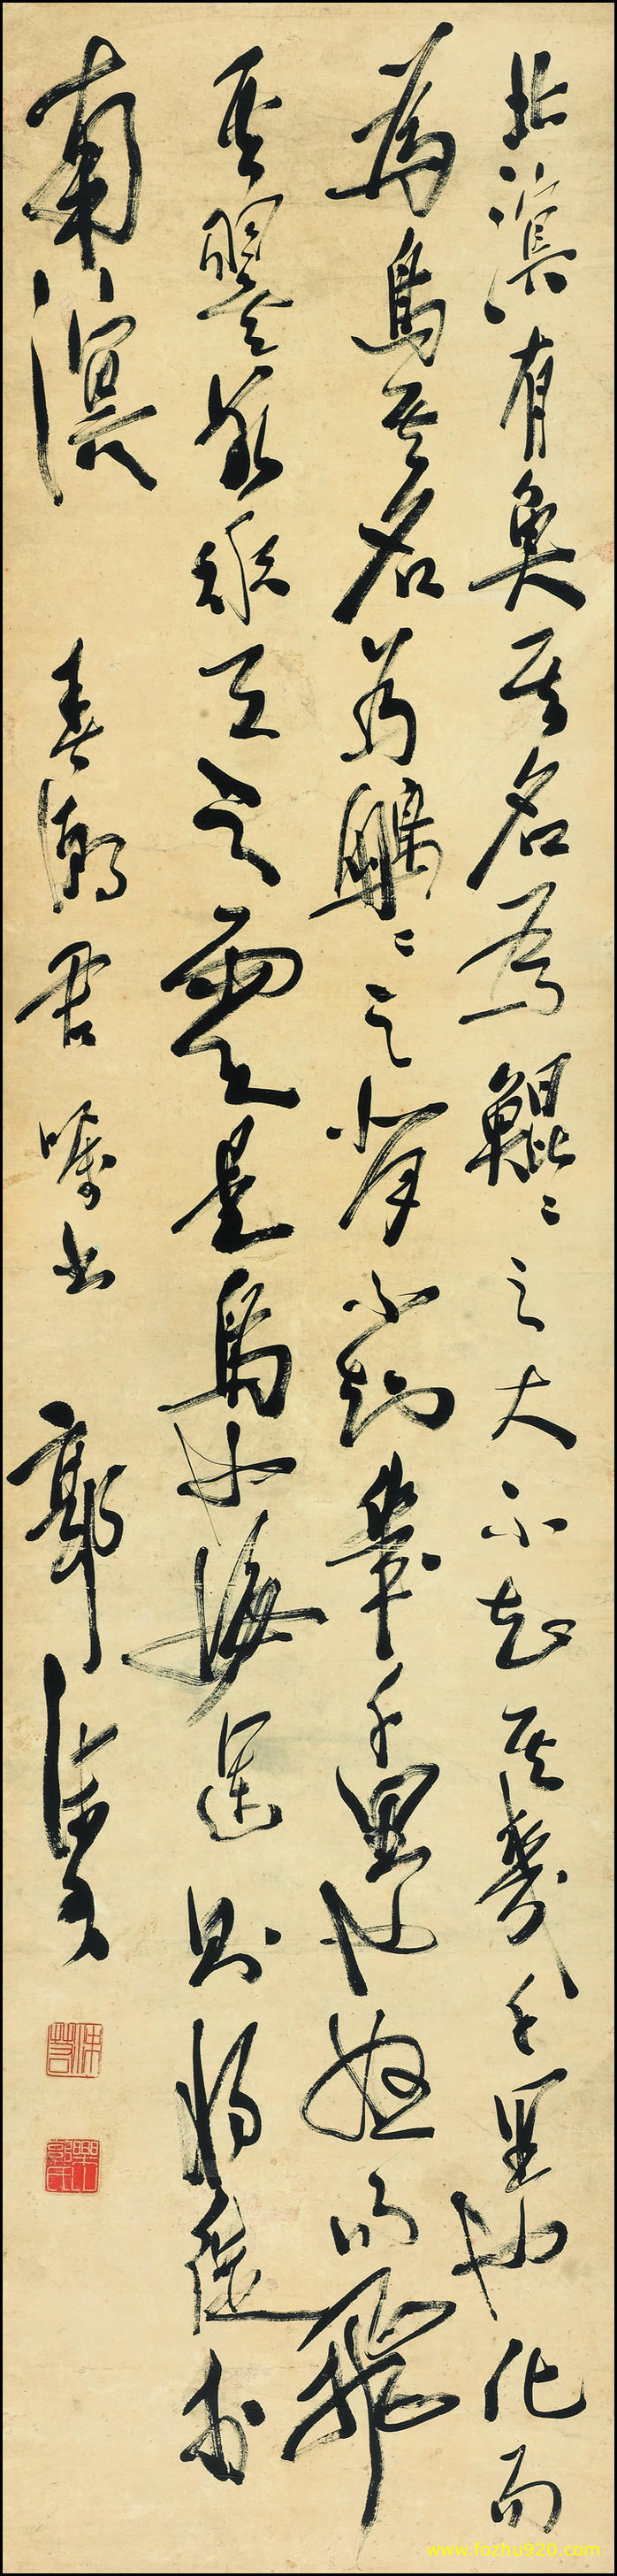 北溟有魚其名為鯤〻之大不知其幾千里也化而
為鳥其名為鵬〻之背不知幾千里也怒而飛
其翼若垂天之雲是鳥也海運則將徙於
南溟 春潮君囑書 郭沫若
沫若
www.fozhu920.com